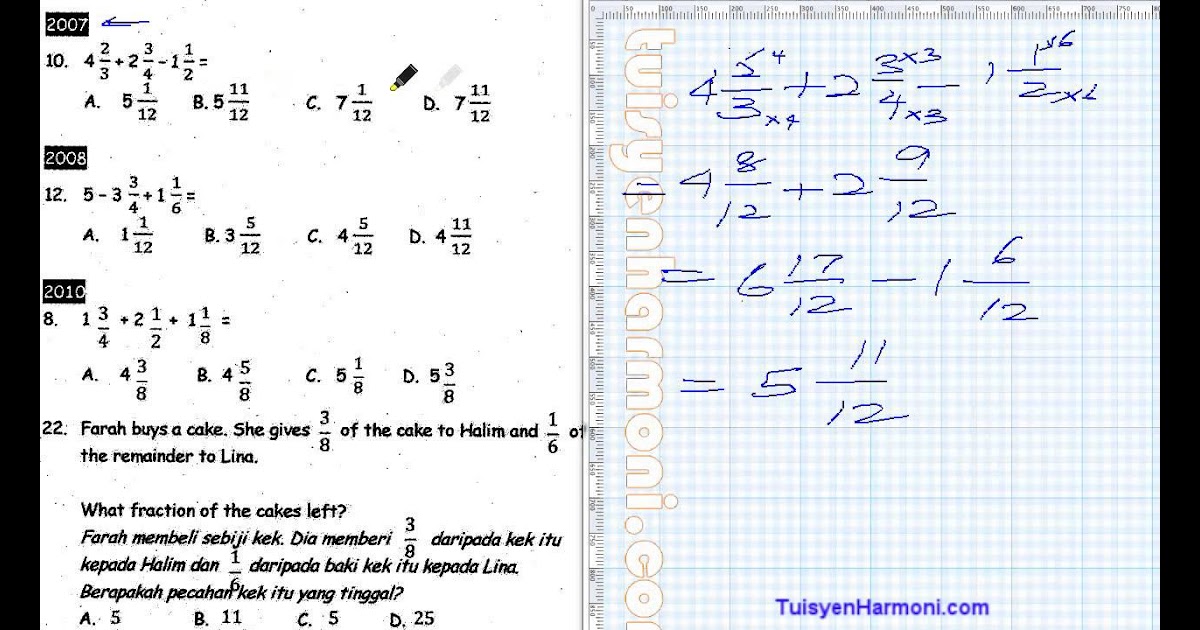 2007
10. 4 2/3 + 2 3/4 - 1 1/2 =
A. 5 1/12 B. 5 11/12 C. 7 1/12 D. 7 11/12
2008
12. 5 - 3 3/4 + 1 1/6 =
A. 1 1/12 B. 3 5/12 C. 4 5/12 D. 4 11/12
2010
8. 1 3/4 + 2 1/2 + 1 1/8 =
A. 4 3/8 B. 4 5/8 C. 5 1/8 D. 5 3/8
22. Farah buys a cake. She gives 3/8 of the cake to Halim and 1/6 of
the remainder to Lina.
What fraction of the cakes left?
Farah membeli sebiji kek. Dia memberi 3/8 daripada kek itu
kepada Halim dan 1/6 daripada baki kek itu kepada Lina.
Berapakah pecahan kek itu yang tinggal?
A. 5 B. 11 C. 5 D. 25
tuisyenharmoni.co
= 4 8/12 + 2 9/12
= 6 17/12 - 1 6/12
= 5 11/12
TuisyenHarmoni.com